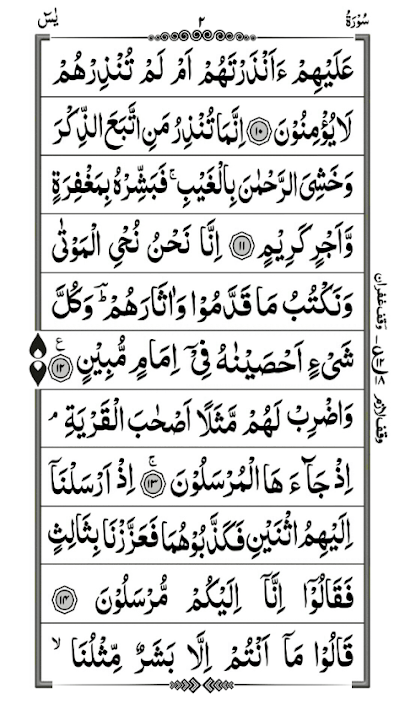 سُوْرَةُ ٢ يٰسٓ
عَلَيْهِمْ ءَاَنْذَرْتَهُمْ اَمْ لَمْ تُنْذِرْهُمْ
لَا يُؤْمِنُوْنَ ﴿١٠﴾ اِنَّمَا تُنْذِرُ مَنِ اتَّبَعَ الذِّكْرَ
وَخَشِيَ الرَّحْمٰنَ بِالْغَيْبِ ۚ فَبَشِّرْهُ بِمَغْفِرَةٍ
وَّاَجْرٍ كَرِيْمٍ ﴿١١﴾ اِنَّا نَحْنُ نُحْيِ الْمَوْتٰى
وَنَكْتُبُ مَا قَدَّمُوْا وَاٰثَارَهُمْ ؕ وَكُلَّ
شَيْءٍ اَحْصَيْنٰهُ فِيْۤ اِمَامٍ مُّبِيْنٍ ﴿١٢﴾ ع
وَاضْرِبْ لَهُمْ مَّثَلًا اَصْحٰبَ الْقَرْيَةِ ۘ
اِذْ جَآءَهَا الْمُرْسَلُوْنَ ﴿١٣﴾ ۚ اِذْ اَرْسَلْنَاۤ
اِلَيْهِمُ اثْنَيْنِ فَكَذَّبُوْهُمَا فَعَزَّزْنَا بِثَالِثٍ
فَقَالُوْۤا اِنَّاۤ اِلَيْكُمْ مُّرْسَلُوْنَ ﴿١٤﴾
قَالُوْا مَاۤ اَنْتُمْ اِلَّا بَشَرٌ مِّثْلُنَا ۙ
وقف غفران
وقف لازم